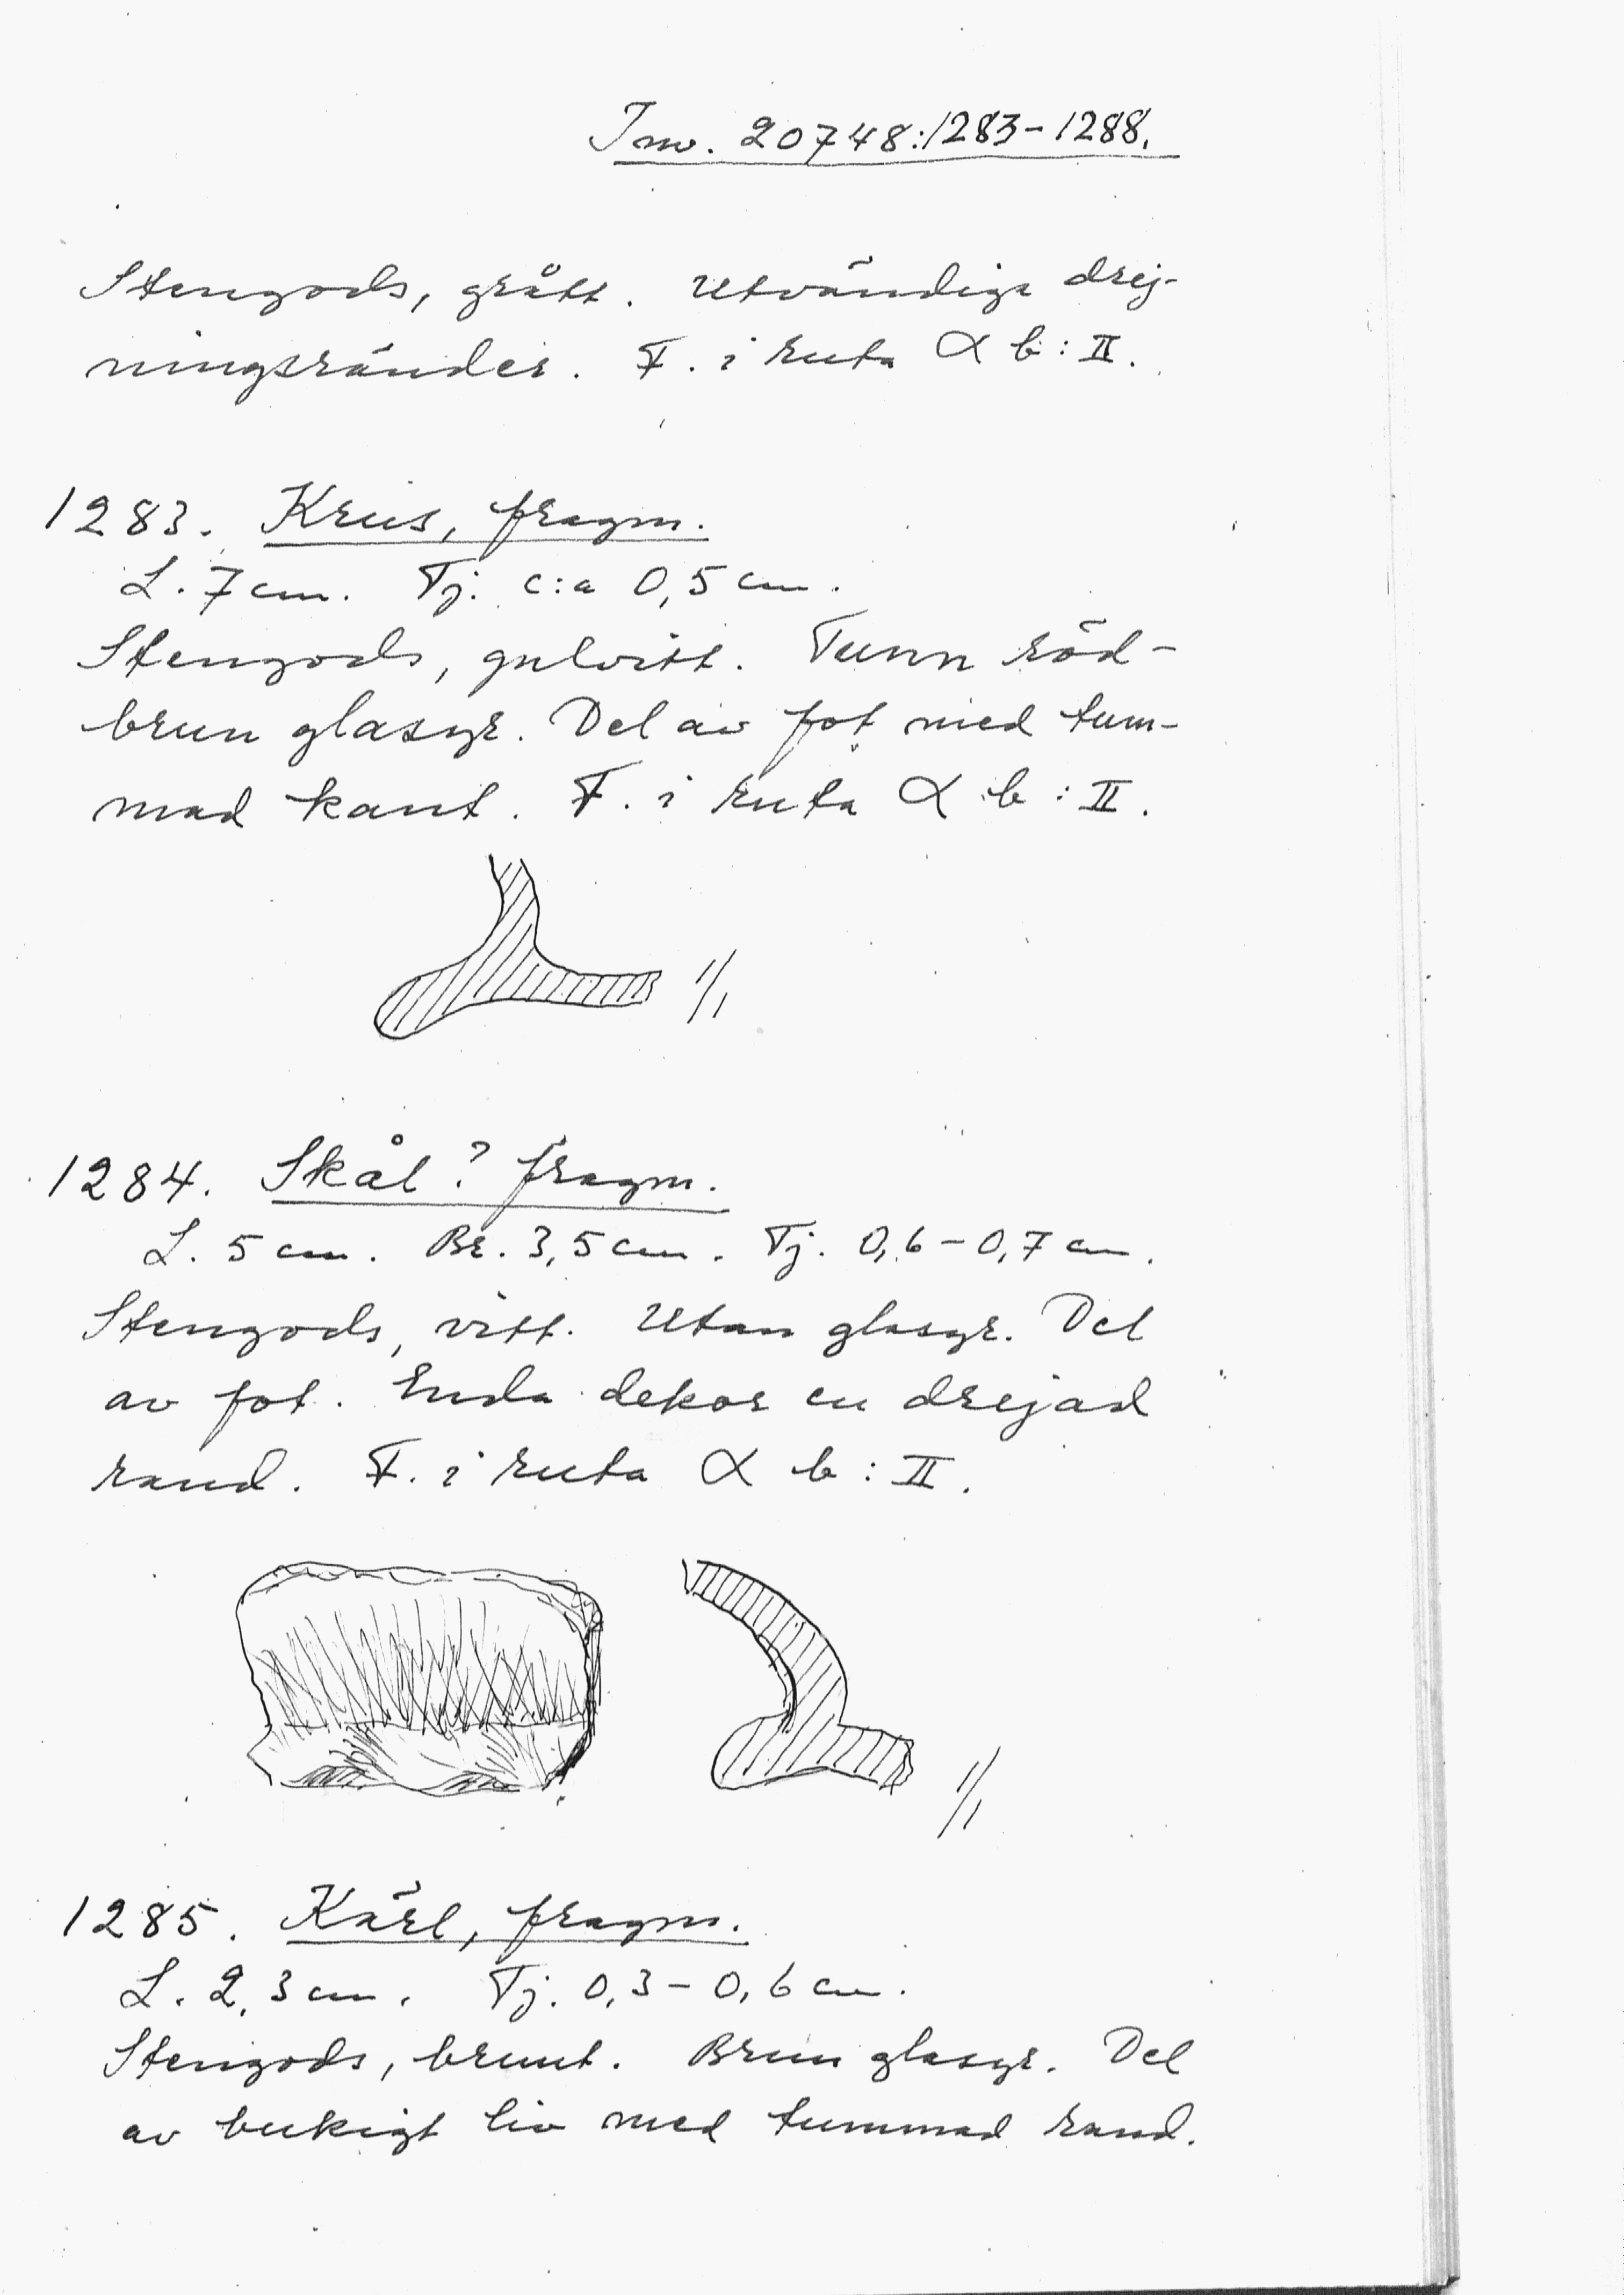 Inv. 20748:1283-1288.
Stengods, grått. Utvändiga drej-
ningsränder. F. i ruta α b: II.
1283. Krus, fragm.
L. 7 cm. Tj. c:a 0,5 cm.
Stengods, gulvitt. Tunn röd-
brun glasyr. Del av fot med tum-
mad kant. F. i ruta α b: II.
1/1
1284. Skål? fragm.
L. 5 cm. Br. 3,5 cm. Tj. 0,6-0,7 cm.
Stengods, vitt. Utan glasyr. Del
av fot. Enda dekor en drejad
rand. F. i ruta α b: II.
1/1
1285. Kärl, fragm.
L. 2,3 cm. Tj. 0,3-0,6 cm.
Stengods, brunt. Brun glasyr. Del
av bukigt liv med tummad rand.